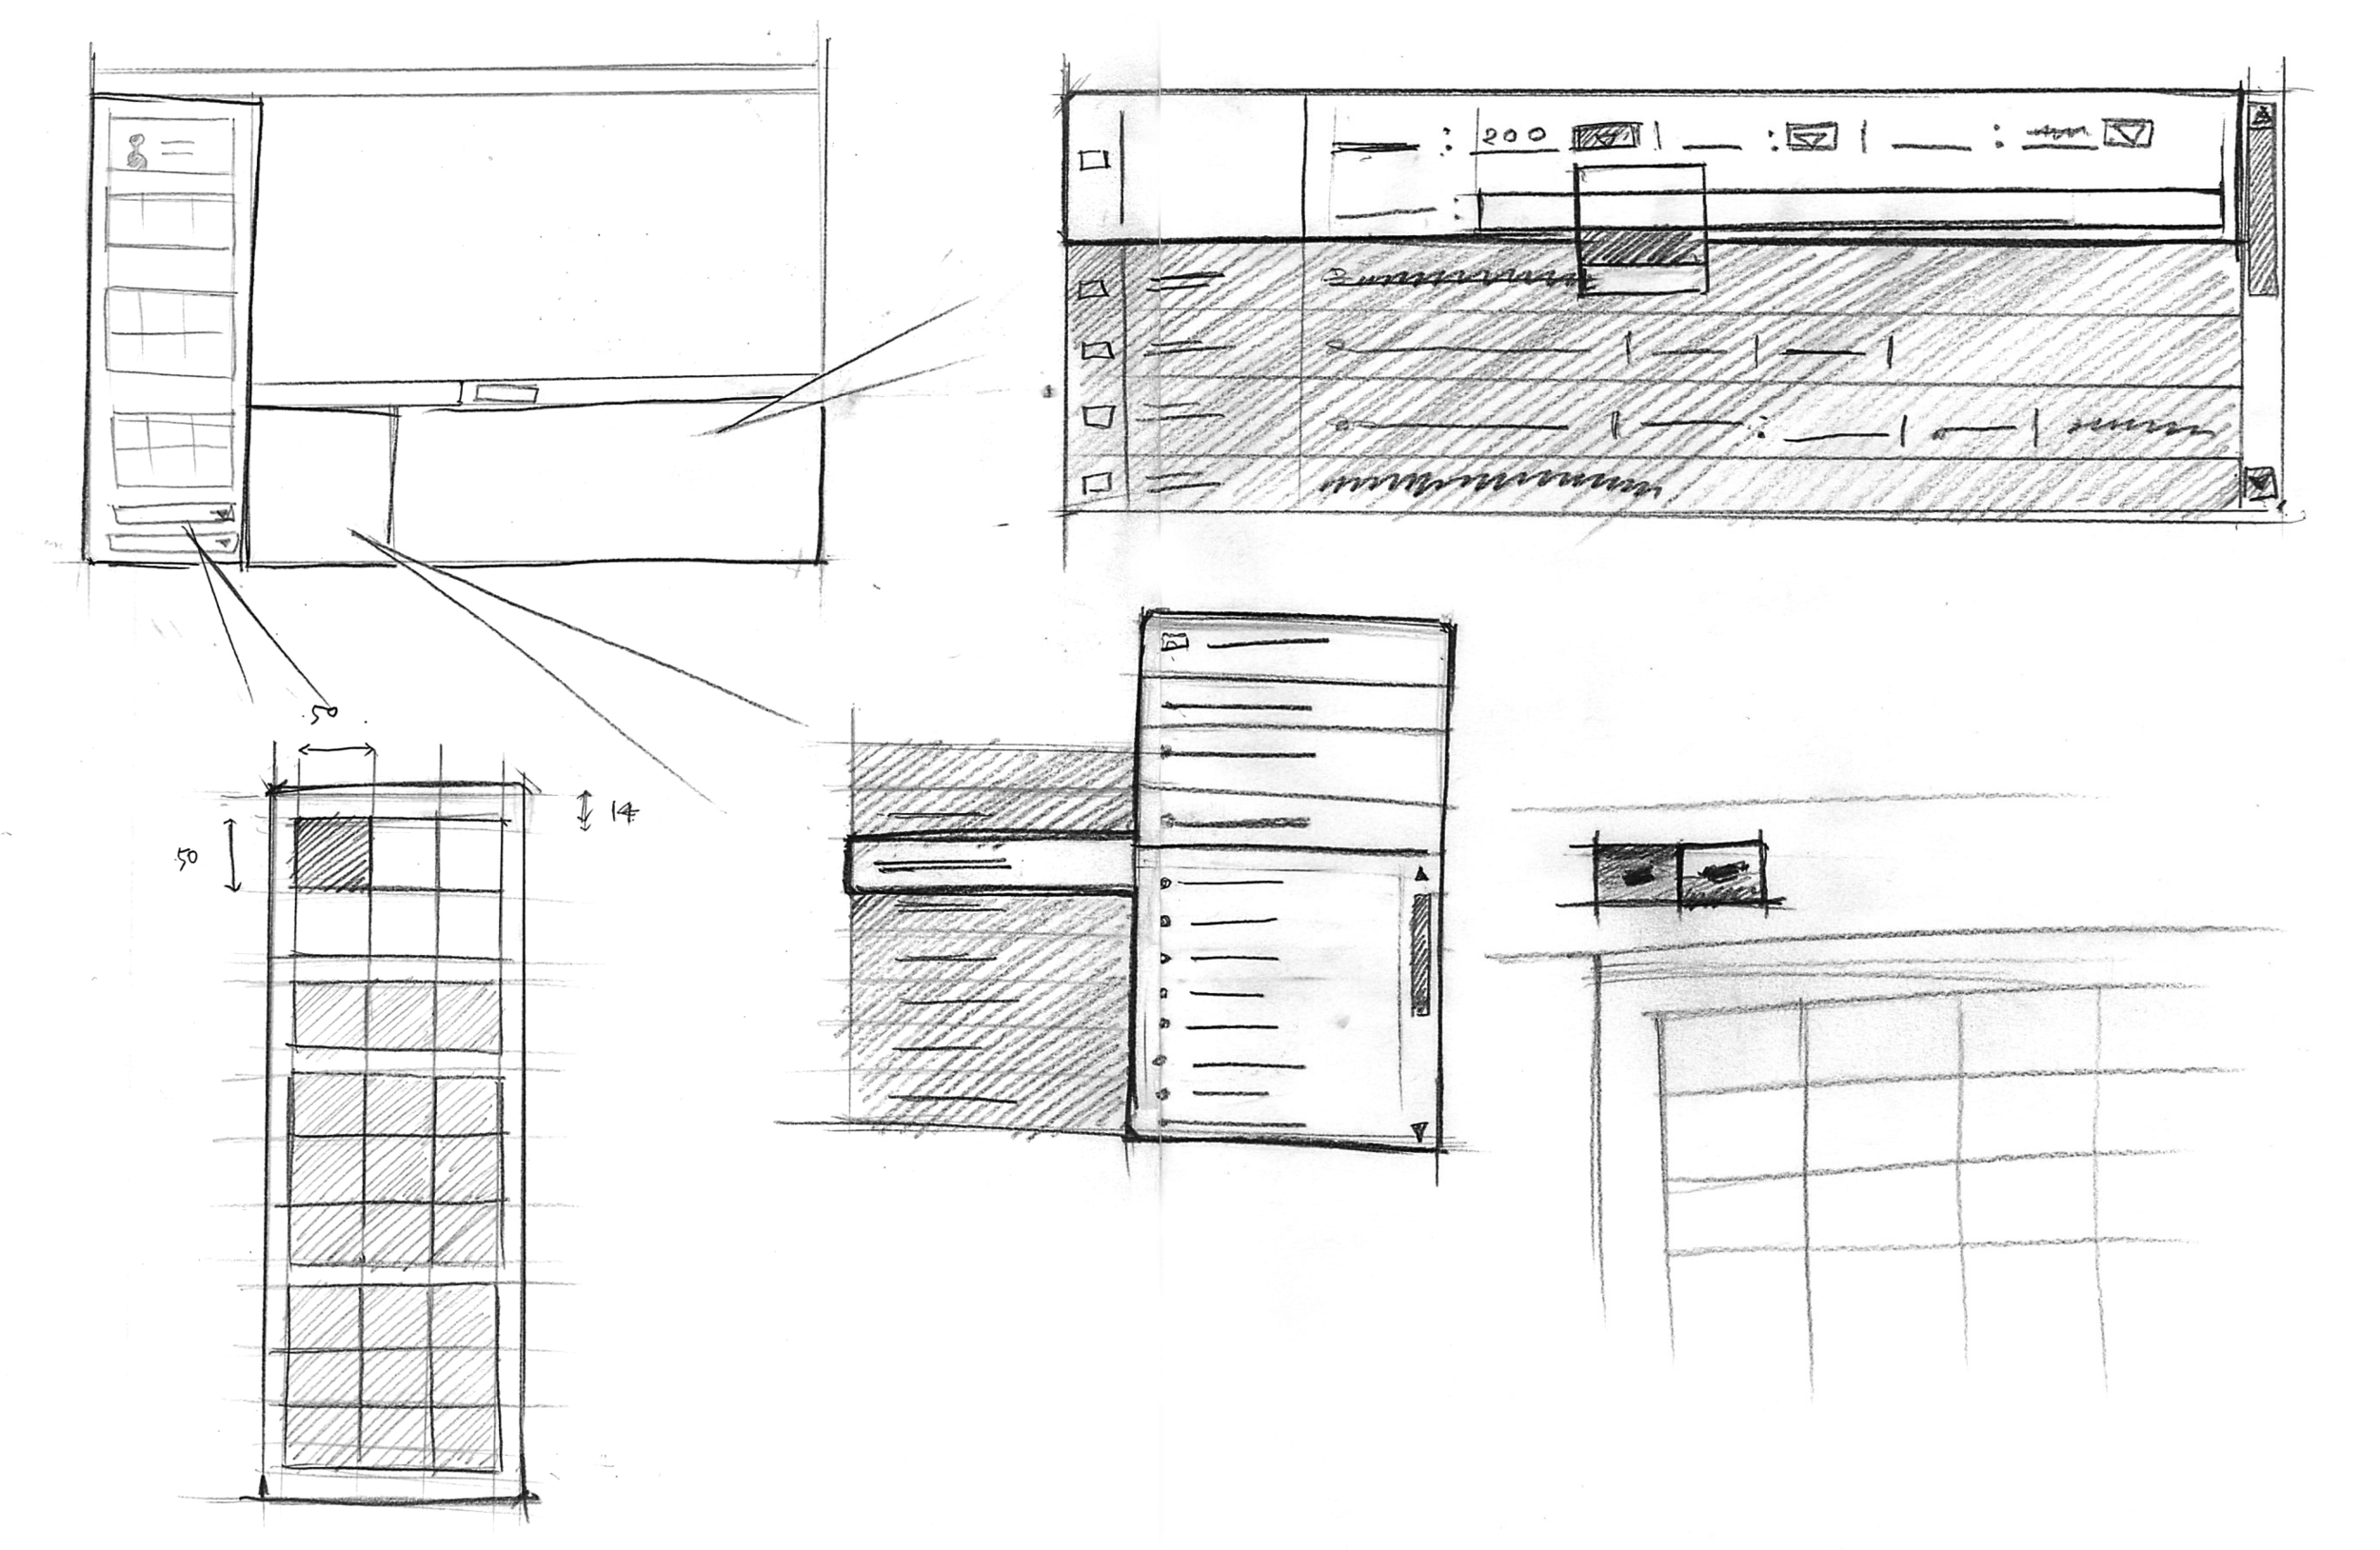 200
50
14
50